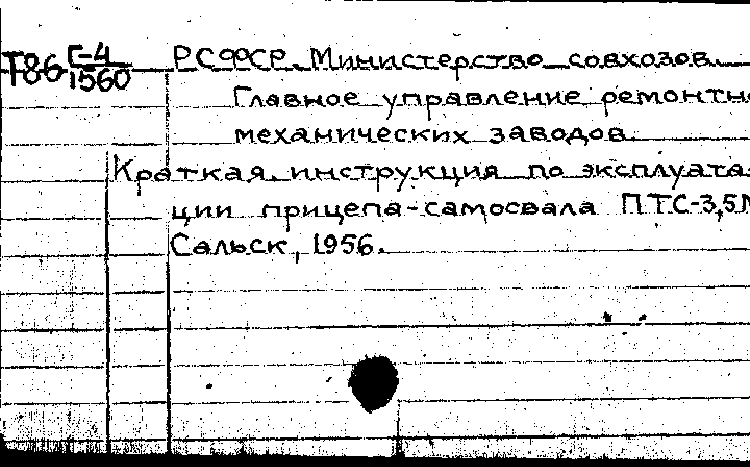 Т86 Г-4/1560
РСФСР. Министерство совхозов.
Главное управление ремонтно
механических заводов.
Краткая инструкция по эксплуата-
ции прицепа-самосвала ПТС-3,5М
Сальск, 1956.